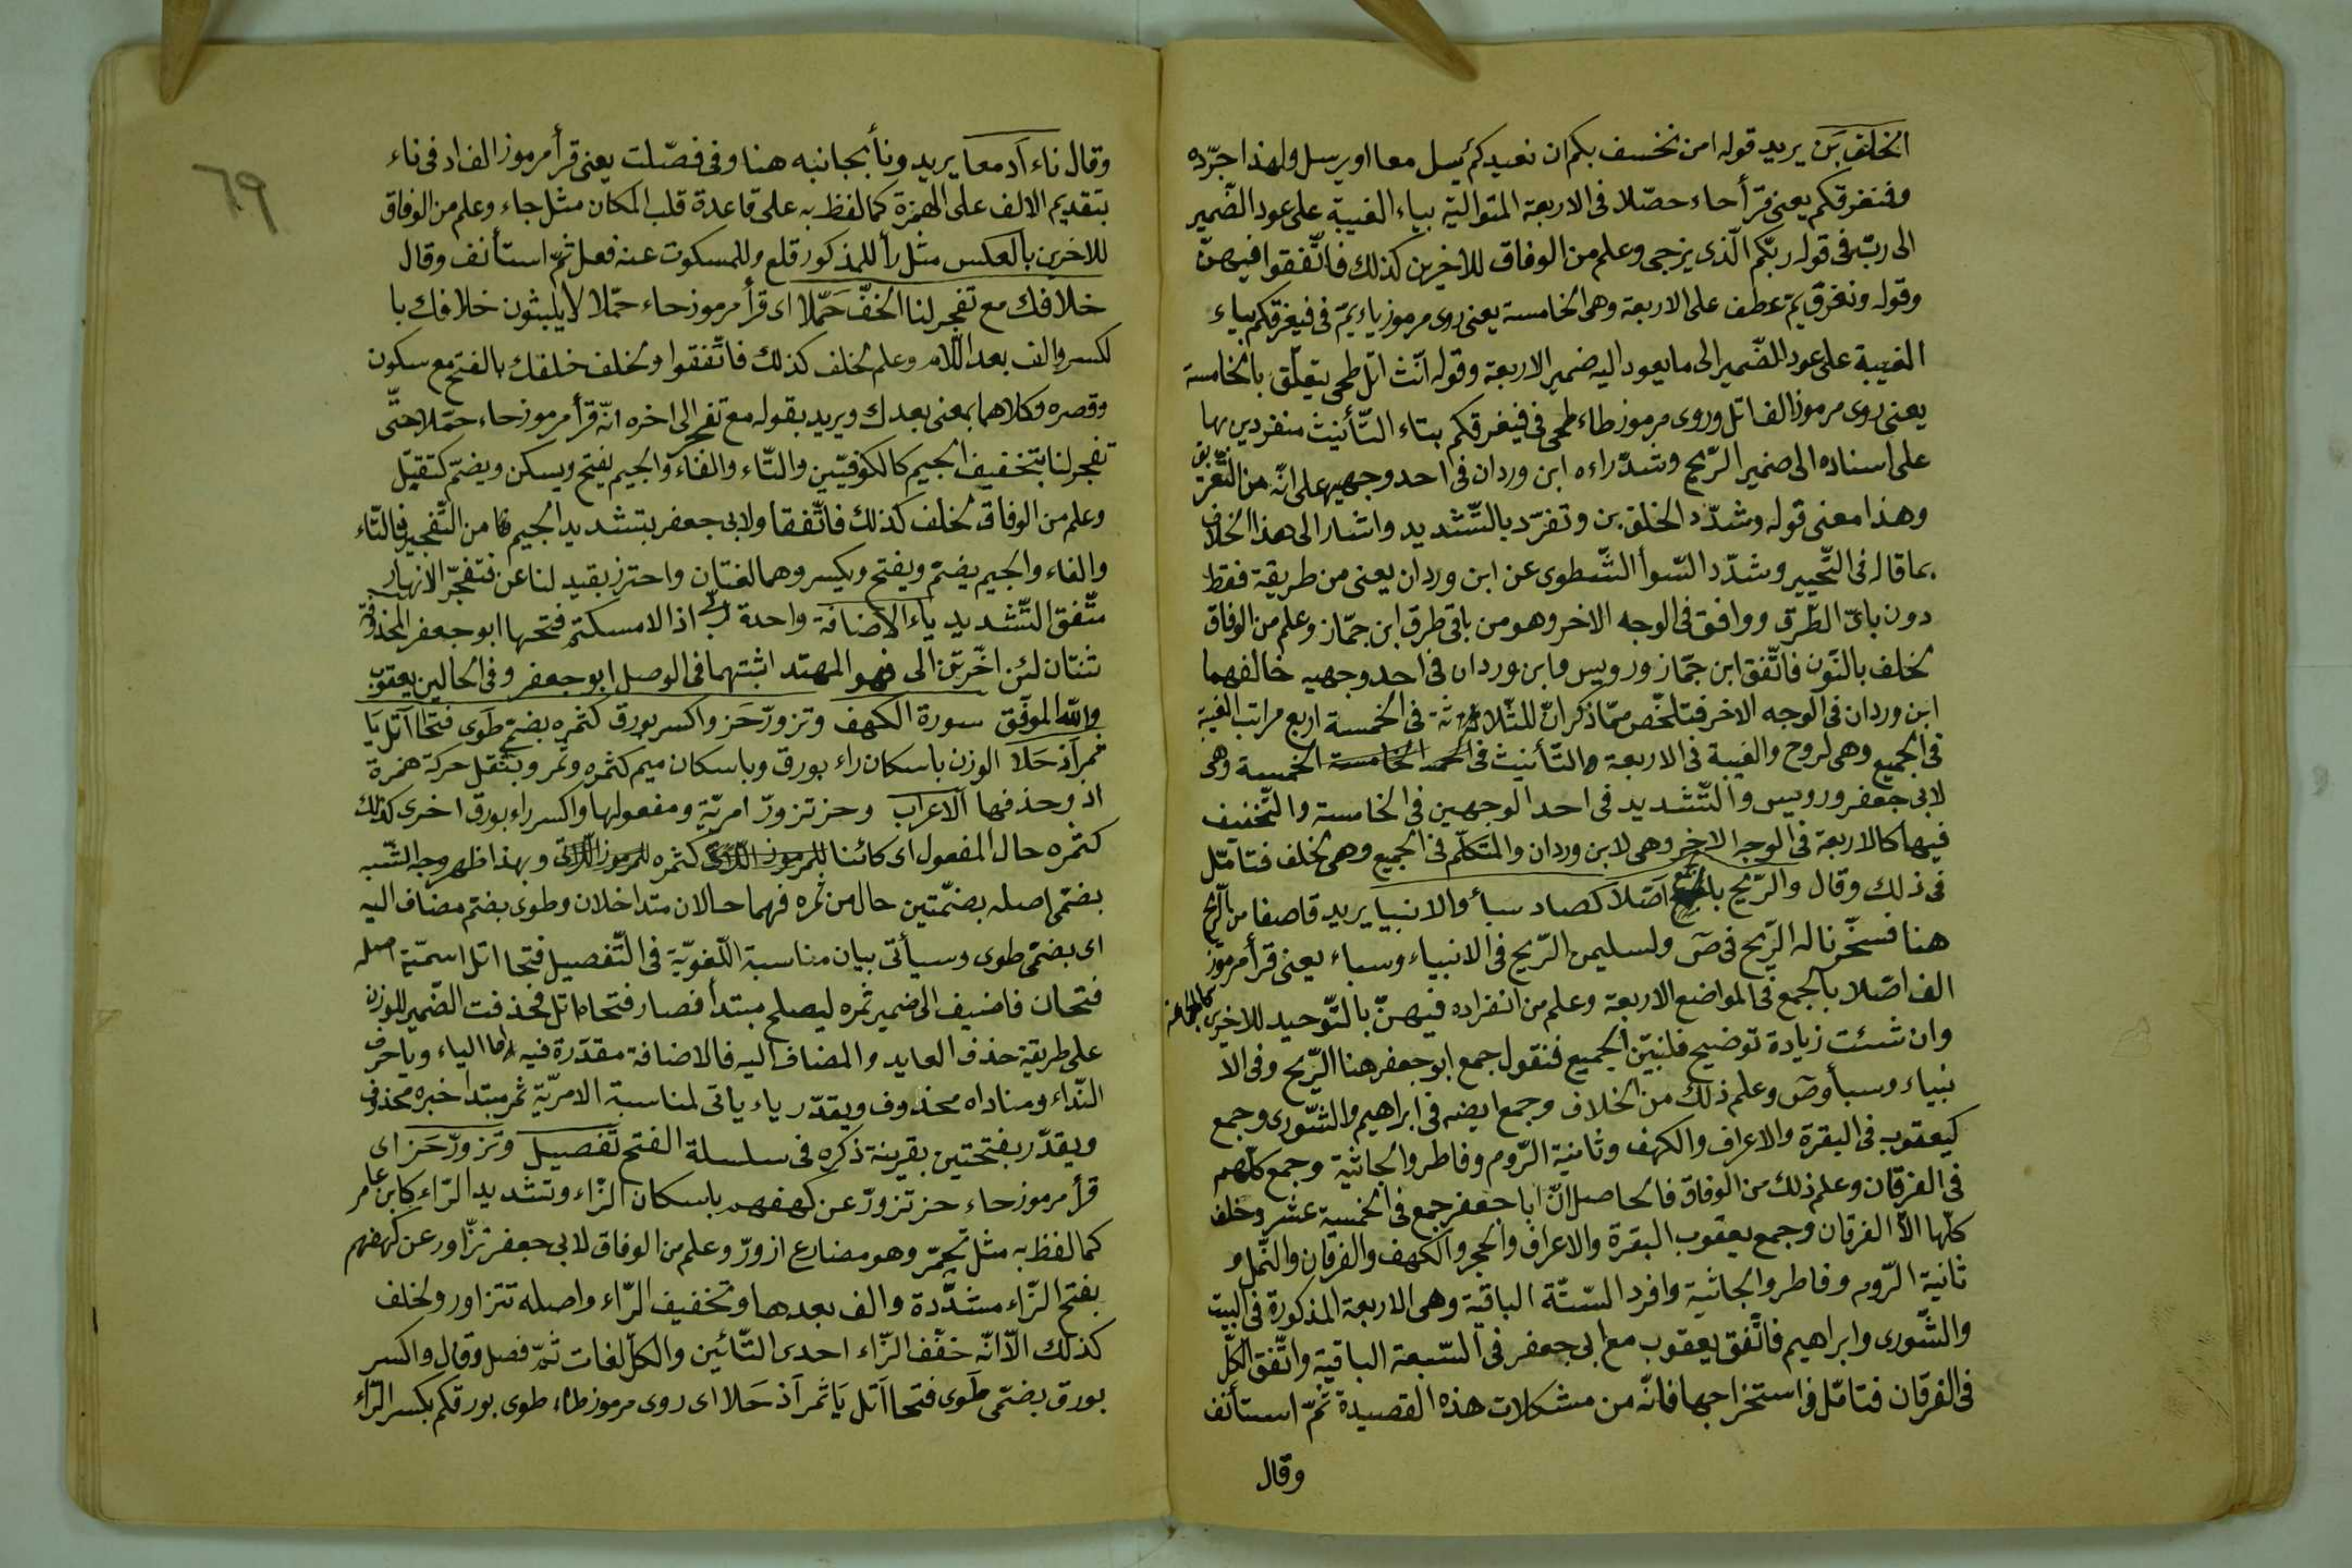 الخلف بن يريد قوله امن نخسف بكم ان نعيدكم نرسل معا او يرسل ولهذا جرّده
وفنغرقكم يعنى قرأ حاء حصّلا فى الاربعة المتوالية بياء الغيبة على عود الضّمير
الى ربّ فى قوله ربّكم الّذى يزجى وعلم من الوفاق للاخرين كذلك فاتّفقوا فيهنّ
وقوله ونغرق يمّ عطف على الاربعة وهى الخامسة يعنى روى مرموز ياء يمّ فى فيغرقكم بياء
الغيبة على عود الضّمير الى ما يعود اليه ضمير الاربعة وقوله انّث اتل طمى يتعلّق بالخامسة
يعنى روى مرموز الف اتل وروى مرموز طاء طمى فى فيغرقكم بتاء التّأنيث منفردين بها
على اسناده الى ضمير الرّيح وشدّد راءه ابن وردان فى احد وجهيه على انّه من التّغريق
وهذا معنى قوله وشدّد الخلف بن وتفرّد بالتّشديد واشار الى هذا الخلاف
بما قاله فى التّحبير وشدّد الرّاء الشّطوى عن ابن وردان يعنى من طريقة فقط
دون باقى الطّرق ووافق فى الوجه الاخر وهو من باقى طرق ابن جمّاز وعلم من الوفاق
لخلف بالنّون فاتّفق ابن جمّاز ورويس وابن وردان فى احد وجهيه خالفهما
ابن وردان فى الوجه الاخر فتلخّص ممّا ذكر انّ للثّلاثة فى الخمسة اربع مراتب الغيبة
فى الجميع وهى لروح والغيبة فى الاربعة والتّأنيث فى الخامسة الخمسة وهى
لابى جعفر ورويس والتّشديد فى احد الوجهين فى الخامسة والتّخفيف
فيها كالاربعة فى الوجه الاخر وهى لابن وردان والمتكلّم فى الجميع وهى لخلف فتأمّل
فى ذلك وقال والرّيح بالجمع اصّلا كصاد سبأ والانبيا يريد قاصفا من الرّيح
هنا فسخّرنا له الرّيح فى ص ولسليمن الرّيح فى الانبياء وسباء يعنى قرأ مرموز
الف اصّلا بالجمع فى المواضع الاربعة وعلم من انفراده فيهنّ بالتّوحيد للاخرين كالجماعة
وان شئت زيادة توضيح فلنبيّن الجميع فنقول جمع ابو جعفر هنا الرّيح وفى الا
نبياء وسبأ وص وعلم ذلك من الخلاف وجمع ايضه فى ابراهيم والشّورى وجمع
كيعقوب فى البقرة والاعراف والكهف وثانية الرّوم وفاطر والجاثية وجمع كلّهم
فى الفرقان وعلم ذلك من الوفاق فالحاصل انّ ابا جعفر جمع فى الخمسة عشر وخلف
كلّها الّا الفرقان وجمع يعقوب البقرة والاعراف والحجر والكهف والفرقان والنّمل و
ثانية الرّوم وفاطر والجاثية وافرد السّتّة الباقية وهى الاربعة المذكورة فى البيت
والشّورى وابراهيم فاتّفق يعقوب مع ابى جعفر فى السّبعة الباقية واتّفق الكلّ
فى الفرقان فتأمّل فى استخراجها فانّه من مشكلات هذه القصيدة ثمّ استأنف
وقال
٦٩
وقال ناء اد معا يريد ونأ بجانبه هنا وفى فصّلت يعنى قرأ مرموز الف اد فى ناء
بتقديم الالف على الهمزة كما لفظ به على قاعدة قلب المكان مثل جاء وعلم من الوفاق
للاخرين بالعكس مثل رأ للمذكور قلع وللمسكوت عنه فعل ثمّ استأنف وقال
خلافك مع تفجر لنا الخفّ حمّلا اى قرأ مرموز حاء حمّلا لا يلبثون خلافك با
لكسر والف بعد اللّام وعلم لخلف كذلك فاتّفقوا ولخلف خلفك بالفتح مع سكون
وقصره وكلاهما بمعنى بعدك ويريد بقوله مع تفجر الى اخره انّه قرأ مرموز حاء حمّلا حتّى
تفجر لنا بتخفيف الجيم كالكوفيّين والتّاء والفاء والجيم بفتح ويسكن ويضمّ كتقتل
وعلم من الوفاق لخلف كذلك فاتّفقا ولابى جعفر بتشديد الجيم كما من التّفجير فالتّاء
والفاء والجيم يضمّ ويفتح ويكسر وهما لغتان واحترز بقيد لنا عن فتفجّر الانهار
متّفق التّشديد ياء الاضافة واحدة ربّى اذا لامسكتم فتحها ابو جعفر المحذوفة
ثنتان لئن اخّرتن الى فهو المهتد اثبتهما فى الوصل ابو جعفر وفى الحالين يعقوب
واللّه الموفّق سورة الكهف وتزورّ حز واكسر بورق كثمره بضمّى طوى فتحا اتل يا
ثمر اذ حلا الوزن باسكان راء بورق وباسكان ميم كثمره وثمر وبنقل حركة همزة
اذ وحذفها الاعراب وحز تزورّ امريّة ومفعولها واكسر راء بورق اخرى كذلك
كثمره حال المفعول اى كائنا كثمره وبهذا ظهر وجه الشّبه
بضمّى اصله بضمّتين حال من ثمره فهما حالان متداخلان وطوى بضم مضاف اليه
اى بضمّى طوى وسيأتى بيان مناسبة اللّغويّة فى التّفصيل فتحا اتل اسميّة اصله
فتحان فاضيف الى ضمير ثمره ليصلح مبتدأ فصار فتحاه اتل فحذفت الضّمير للوزن
على طريقة حذف العايد والمضاف اليه فالاضافة مقدّرة فيه واما الياء ويا حرف
النّداء ومناداه محذوف ويقدّر ياء ياتى لمناسبة الامريّة ثمر مبتدا خبره محذوف
ويقدّر بفتحتين بقرينة ذكره فى سلسلة الفتح تفصيل وتزورّ حز اى
قرأ مرموز حاء حز تزورّ عن كهفهم باسكان الزّاء وتشديد الرّاء كابن عامر
كما لفظ به مثل تحمرّ وهو مضارع ازورّ وعلم من الوفاق لابى جعفر تزّاور عن كهفهم
بفتح الزّاء مشدّدة والف بعدها وتخفيف الرّاء واصله تتزاور ولخلف
كذلك الّا انّه خفّف الزّاء احدى التّائين والكلّ لغات ثمّ فصل وقال واكسر
بورق بضمّى طوى فتحا اتل يا ثمر اذ حلا اى روى مرموز طاء طوى بورقكم بكسر الرّاء